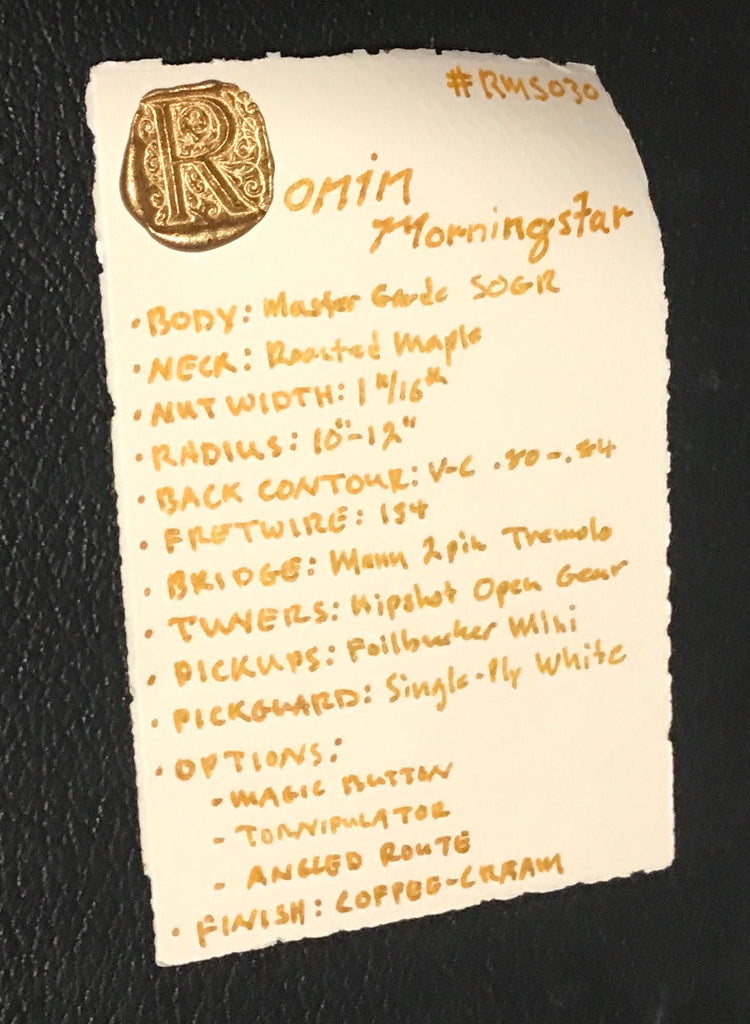 #RMS030
Ronin
Morningstar
• BODY: Master Grade SOGR
• NECK: Roasted Maple
• NUT WIDTH: 1 11/16th
• RADIUS: 10"-12"
• BACK CONTOUR: V-C .80-.84
• FRETWIRE: 154
• BRIDGE: Mann 2pin Tremolo
• TUNERS: Hipshot Open Gear
• PICKUPS: Foilbucker Mini
• PICKGUARD: Single-Ply White
• OPTIONS:
- MAGIC BUTTON
- TONNIPULATOR
- ANGLED ROUTE
• FINISH: COFFEE-CREAM